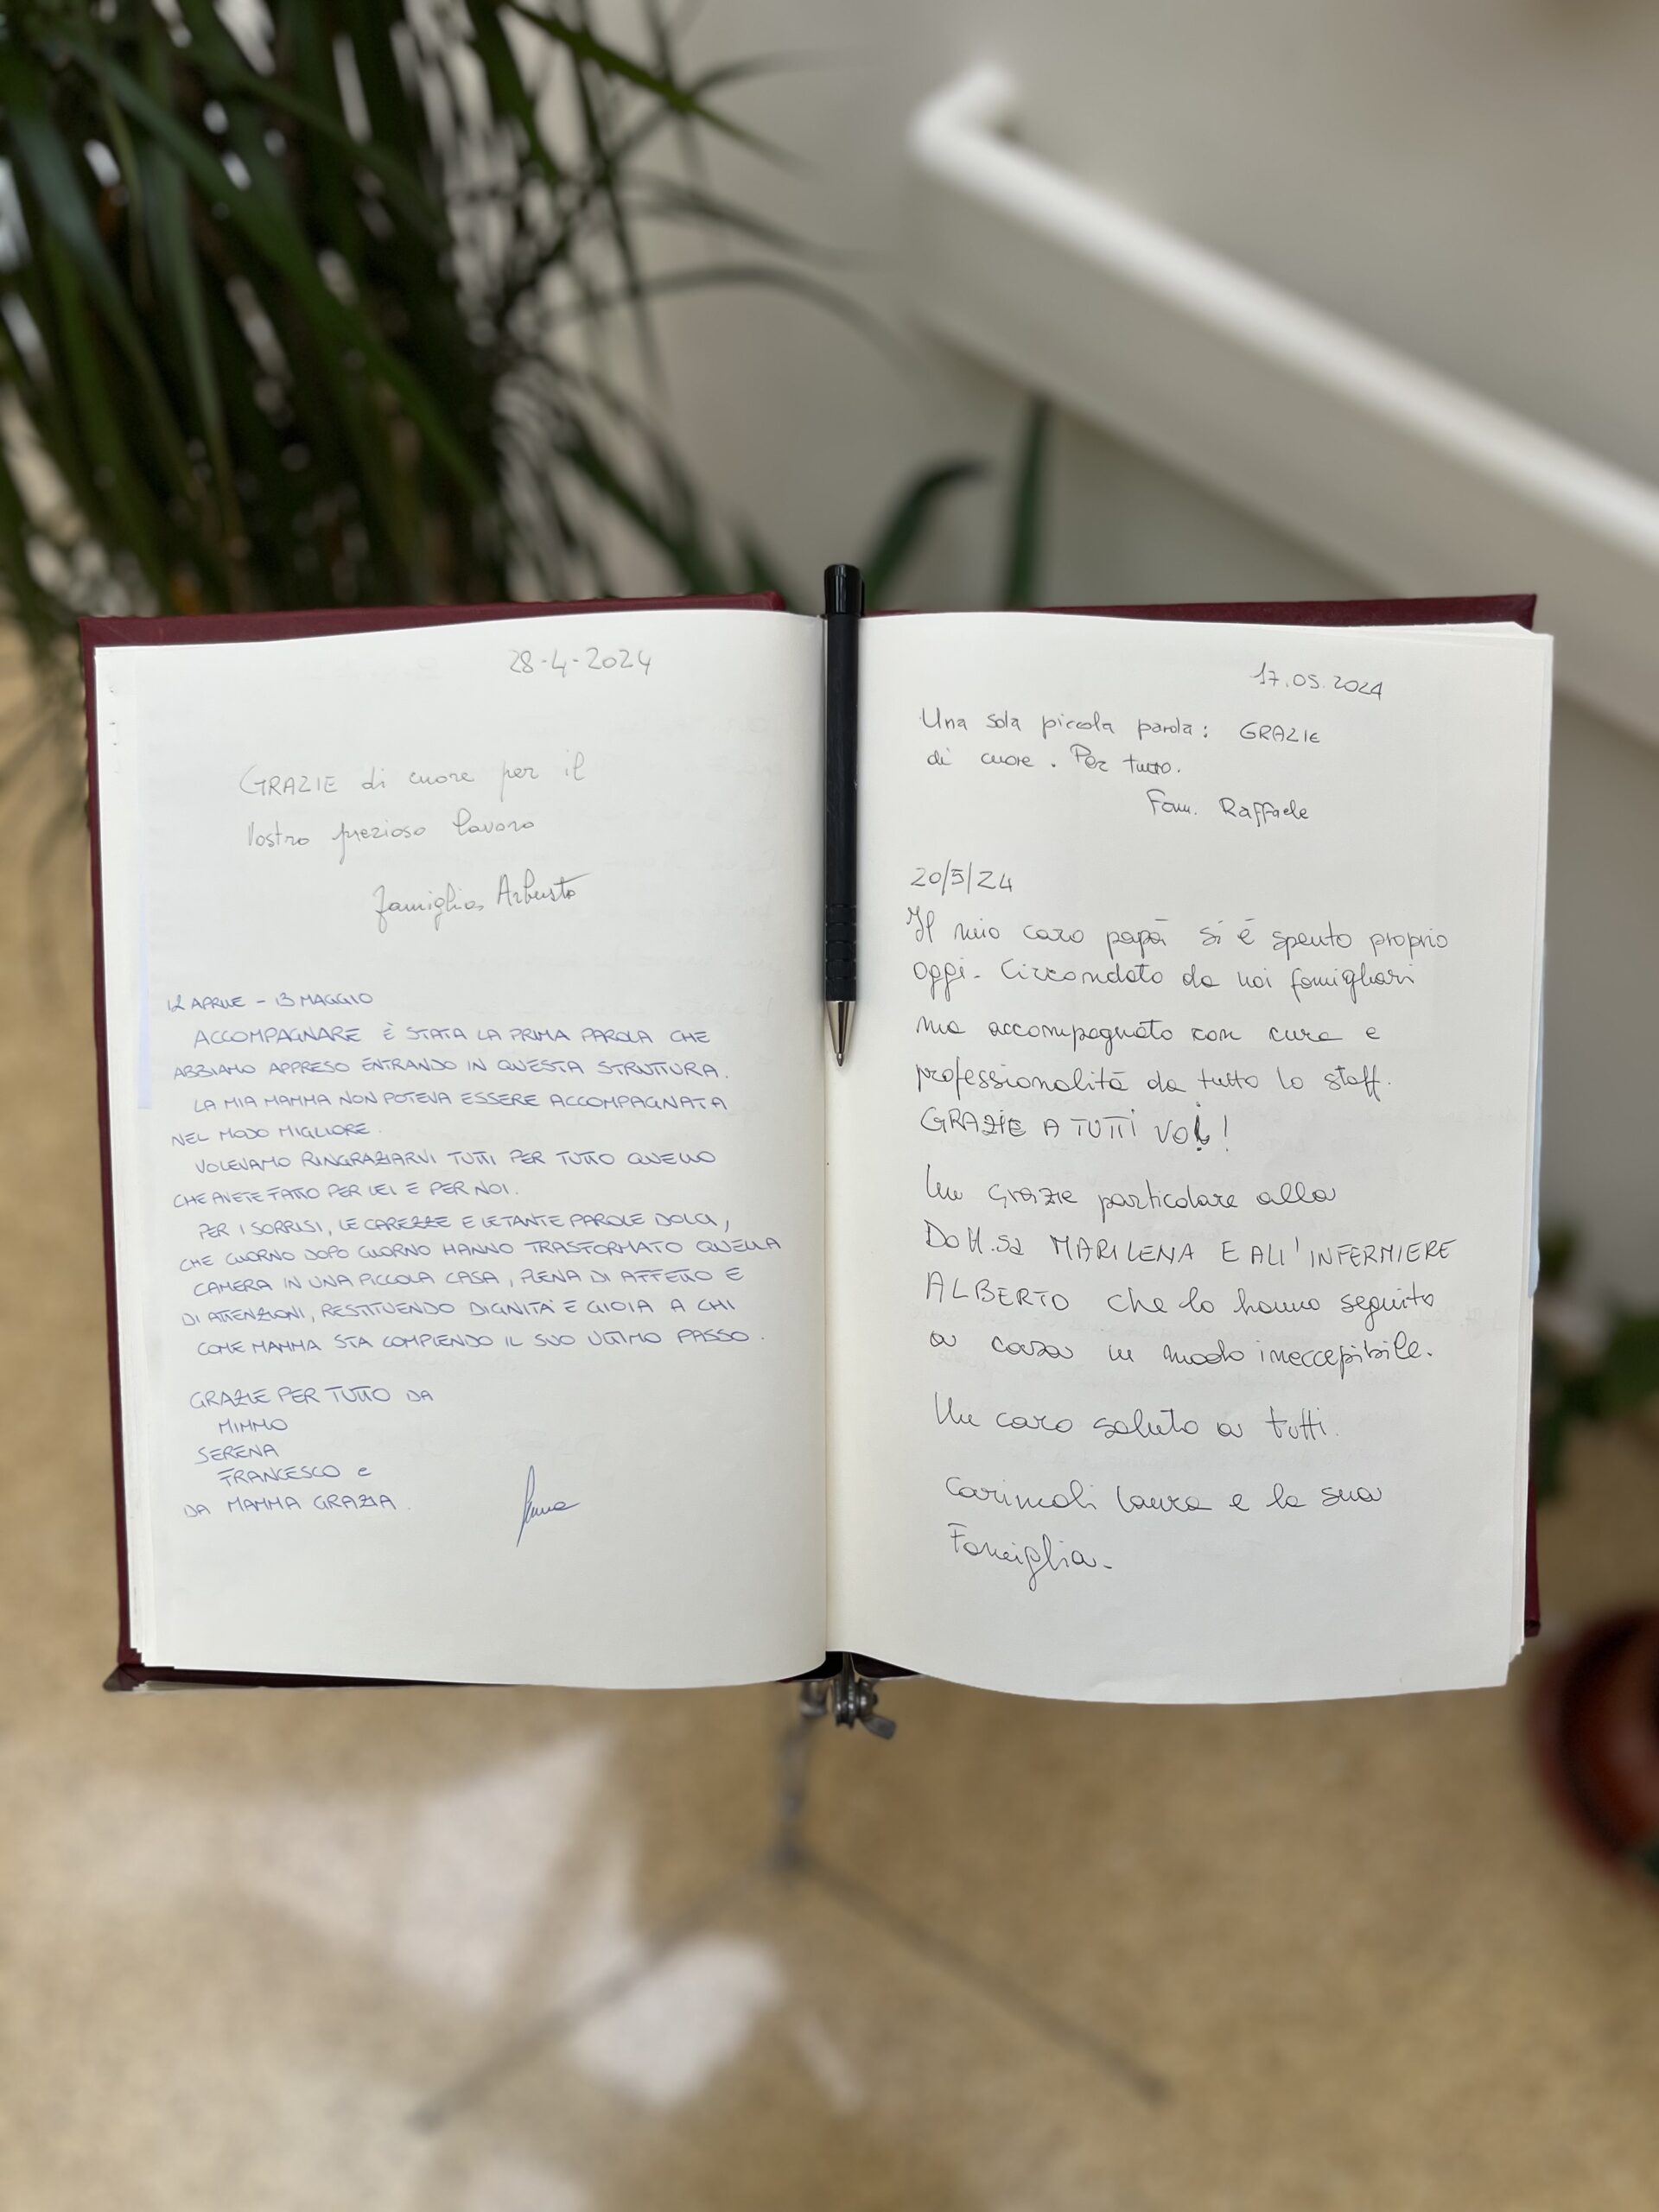 28-4-2024
GRAZIE di cuore per il
Vostro prezioso lavoro
famiglia Arbusto
12 APRILE - 13 MAGGIO
ACCOMPAGNARE È STATA LA PRIMA PAROLA CHE
ABBIAMO APPRESO ENTRANDO IN QUESTA STRUTTURA.
LA MIA MAMMA NON POTEVA ESSERE ACCOMPAGNATA
NEL MODO MIGLIORE.
VOLEVAMO RINGRAZIARVI TUTTI PER TUTTO QUELLO
CHE AVETE FATTO PER LEI E PER NOI.
PER I SORRISI, LE CAREZZE E LE TANTE PAROLE DOLCI,
CHE GIORNO DOPO GIORNO HANNO TRASFORMATO QUELLA
CAMERA IN UNA PICCOLA CASA, PIENA DI AFFETTO E
DI ATTENZIONI, RESTITUENDO DIGNITA' E GIOIA A CHI
COME MAMMA STA COMPIENDO IL SUO ULTIMO PASSO.
GRAZIE PER TUTTO DA
MIMMO
SERENA
FRANCESCO e
DA MAMMA GRAZIA.
17.05.2024
Una sola piccola parola: GRAZIE
di cuore. Per tutto.
Fam. Raffaele
20/5/24
Il mio caro papà si é spento proprio
oggi. Circondato da noi famigliari
ma accompagnato con cura e
professionalità da tutto lo staff.
GRAZIE A TUTTI VOI!
Un grazie particolare alla
Dott.sa MARILENA E ALL'INFERMIERE
ALBERTO che lo hanno seguito
a casa in modo ineccepibile.
Un caro saluto a tutti.
Carimali Laura e la sua
Famiglia.